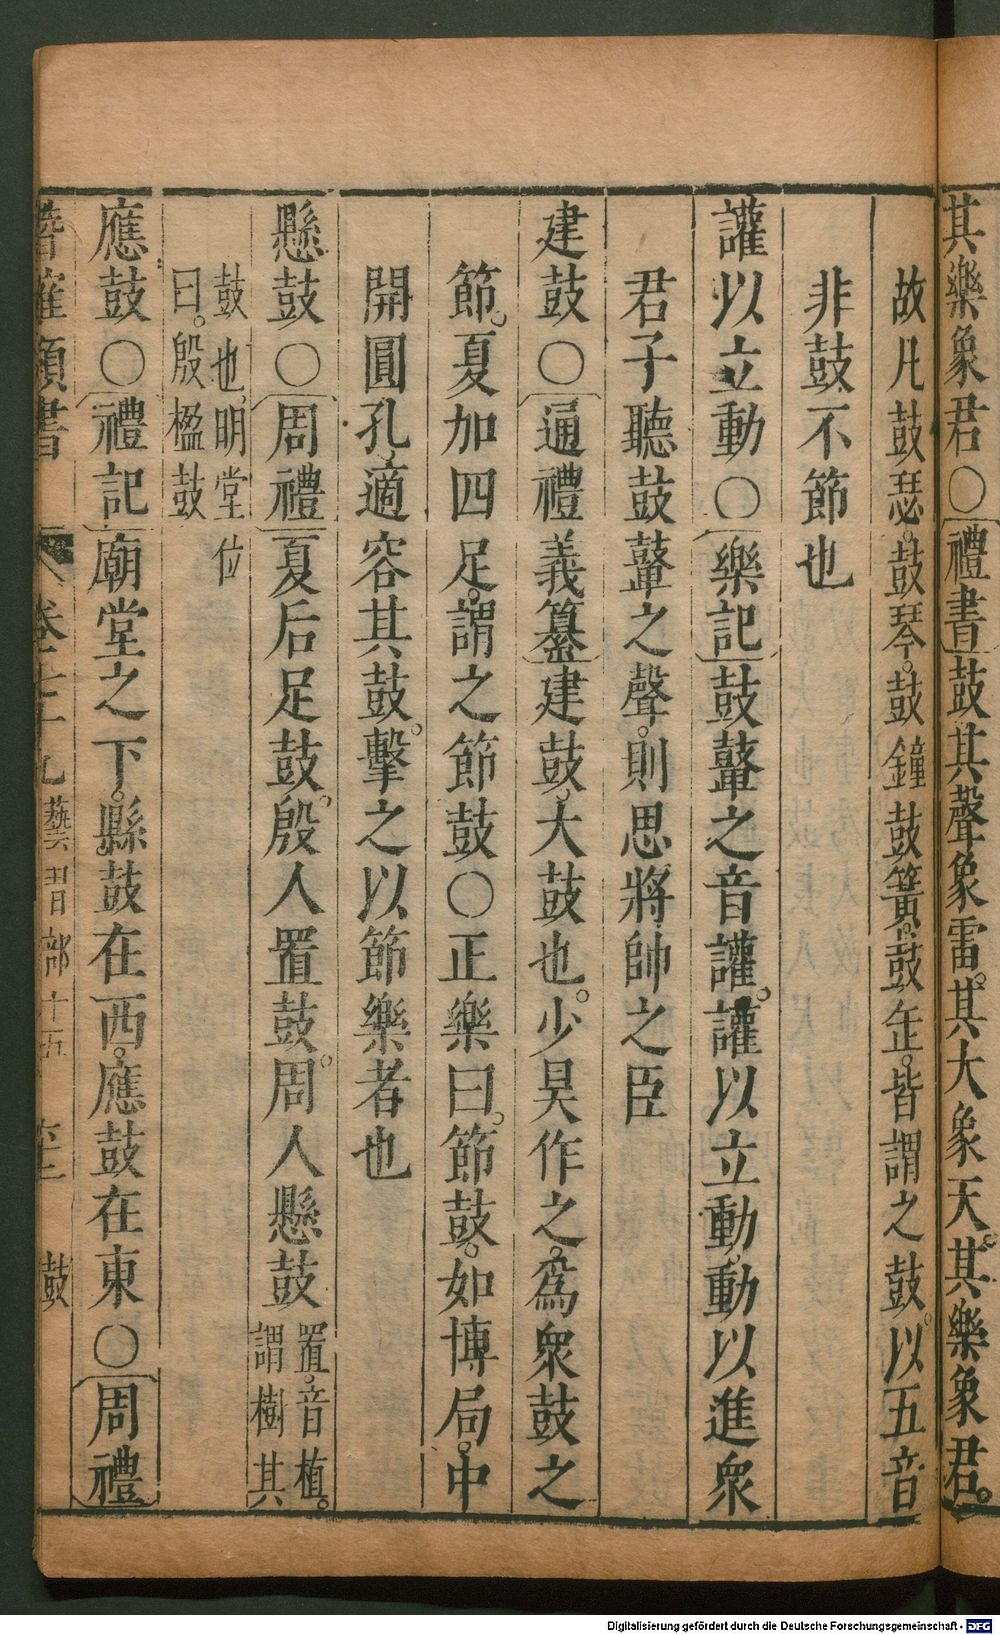 其樂象君○禮書鼓其聲象雷。其大象天。其樂象君。
故凡鼓瑟。鼓琴。鼓鐘鼓簧。鼓缶。皆謂之鼓。以五音
非鼓不節也
讙以立動○樂記鼓鼙之音讙。讙以立動。動以進衆
君子聽鼓鼙之聲。則思將帥之臣
建鼓○通禮義纂建鼓。大鼓也。少昊作之。爲衆鼓之
節。夏加四足。謂之節鼓○正樂曰。節鼓。如博局。中
開圓孔。適容其鼓。擊之以節樂者也
懸鼓○周禮夏后足鼓。殷人置鼓。周人懸鼓置。音植。謂樹其
鼓也。明堂位曰。殷楹鼓
應鼓○禮記廟堂之下。縣鼓在西。應鼓在東○周禮
潛確類書 卷七十九 藝習部十五 鼓
Digitalisierung gefördert durch die Deutsche Forschungsgemeinschaft - DFG